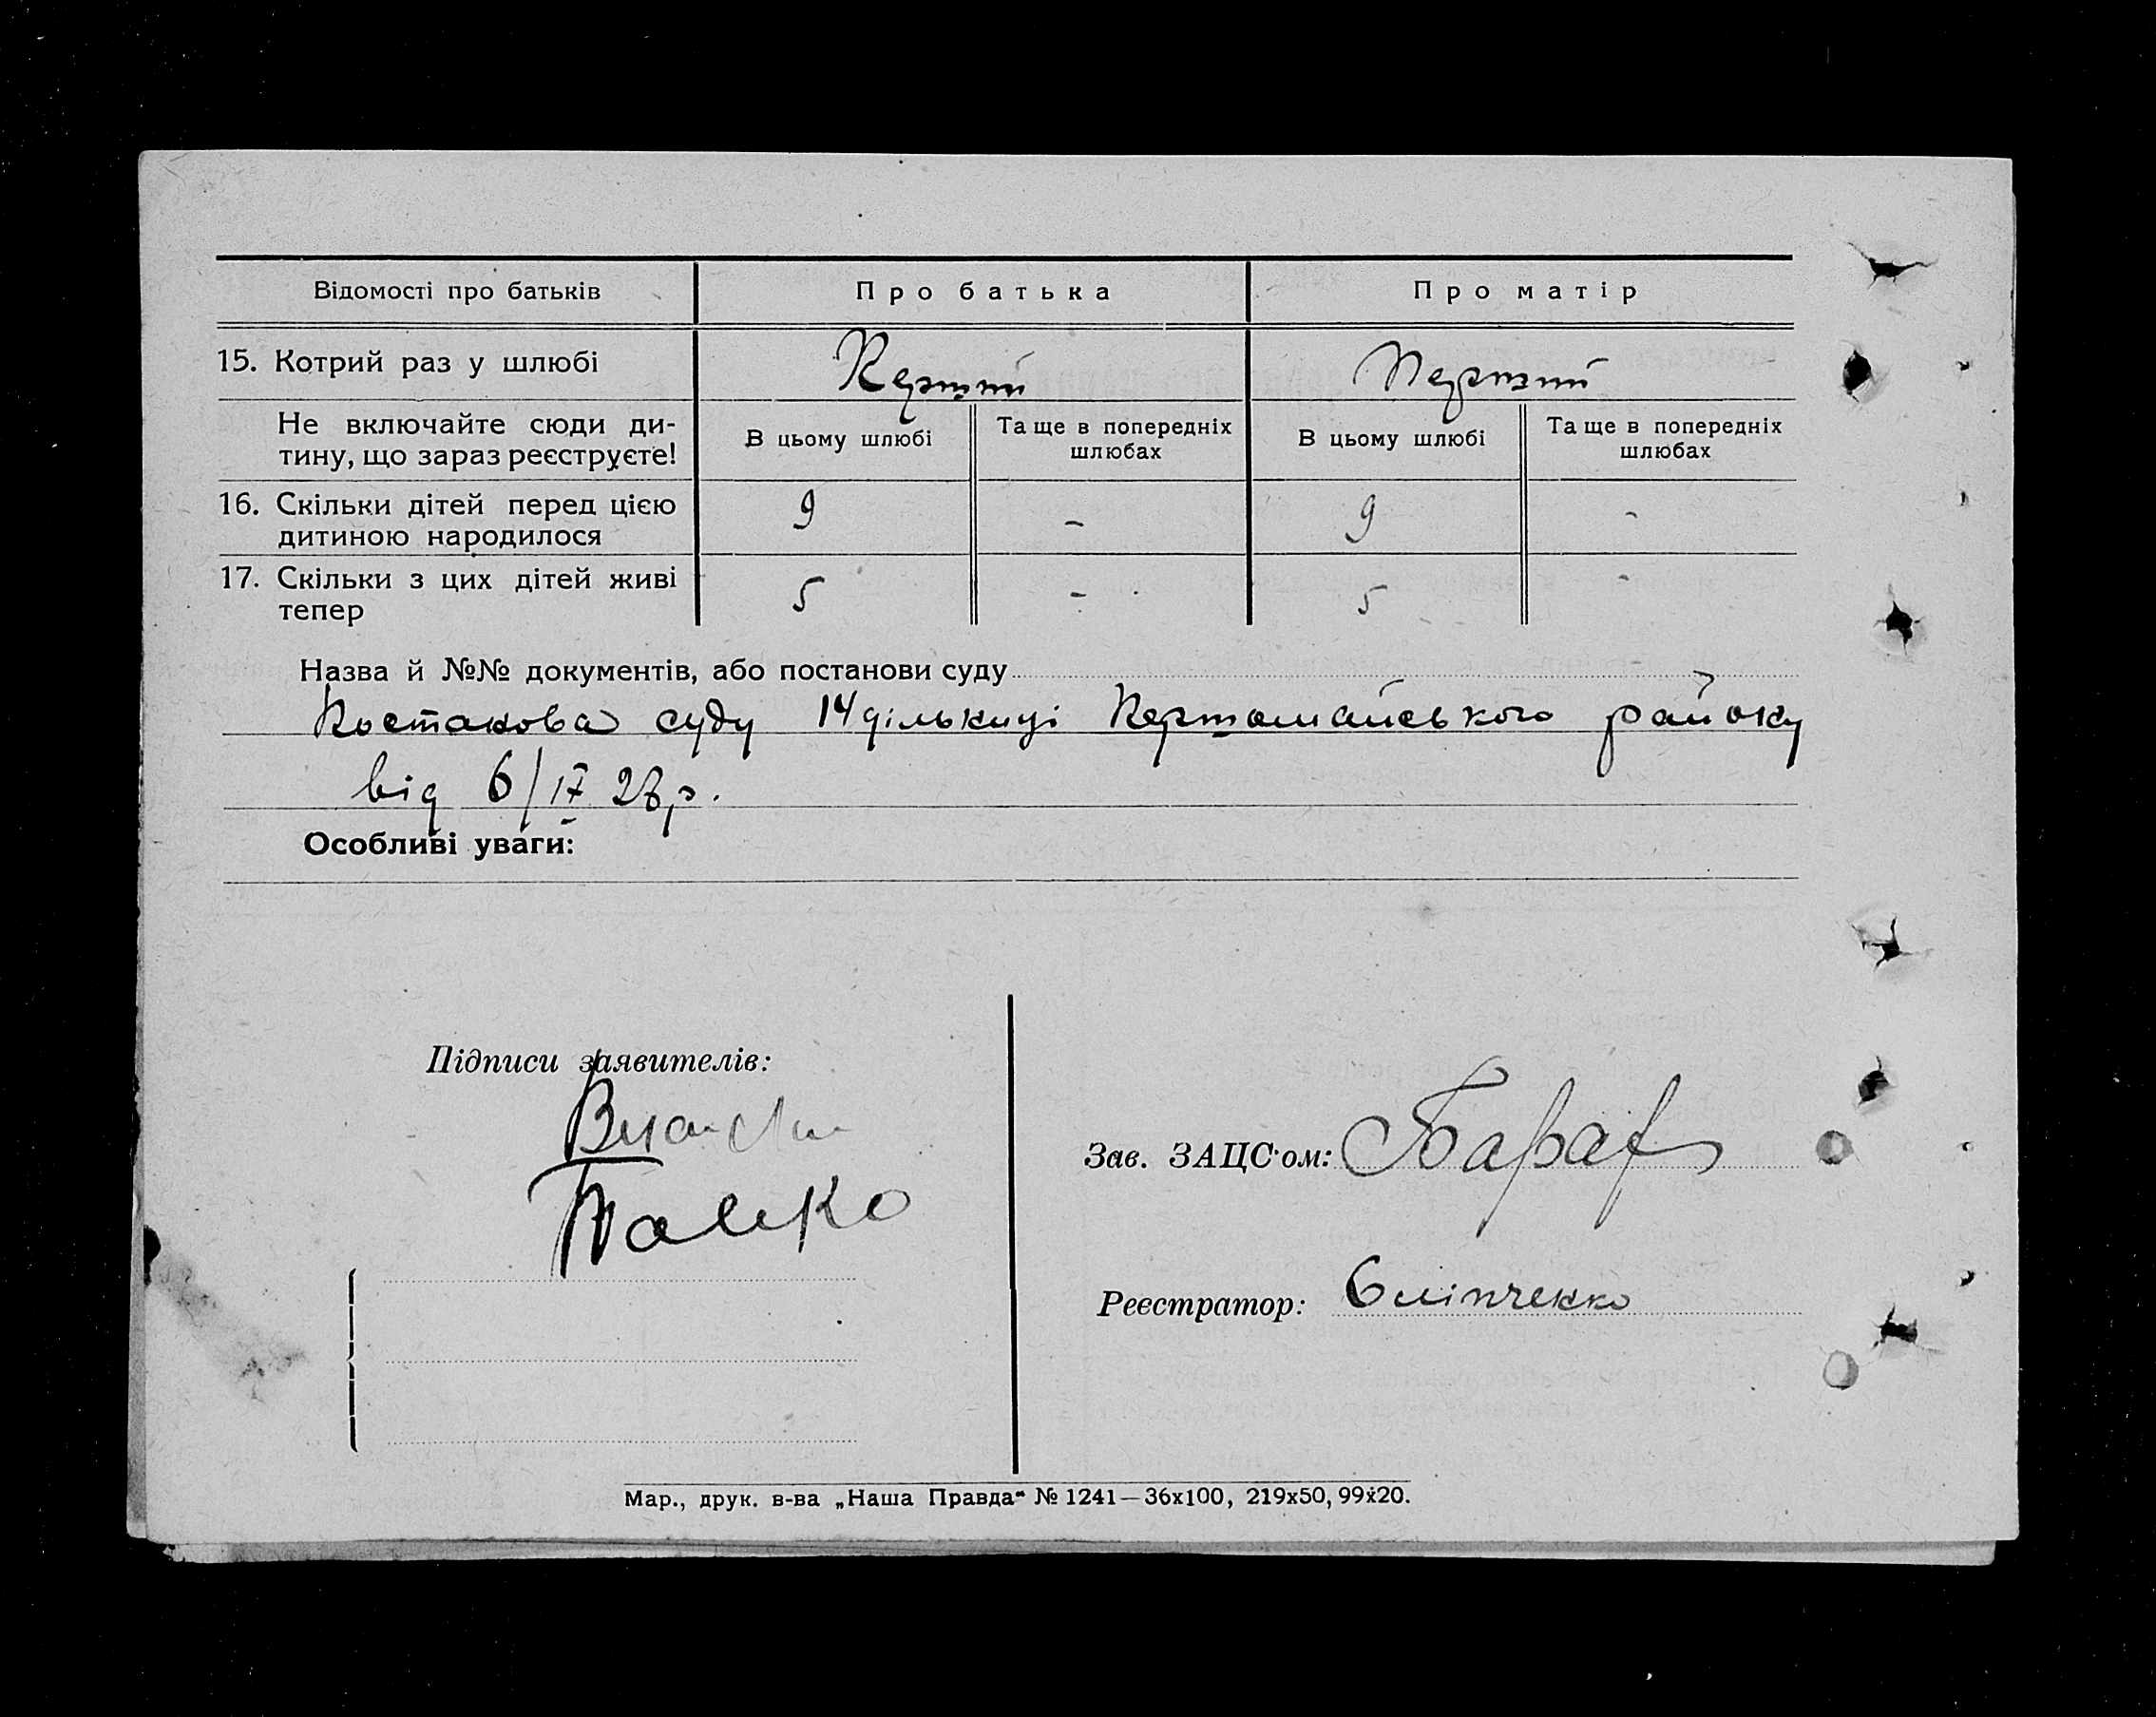 Відомості про батьків Про батька Про матір
15. Котрий раз у шлюбі Перший Перший
Не включайте сюди ди-
тину, що зараз реєструєте!
В цьому шлюбі Та ще в попередніх шлюбах В цьому шлюбі Та ще в попередніх шлюбах
16. Скільки дітей перед цією
дитиною народилося 9 - 9 -
17. Скільки з цих дітей живі
тепер 5 - 5 -
Назва й №№ документів, або постанови суду
Постанова суду 14 дільниці Першомайського району
від 6/IV 28 р.
Особливі уваги:
Підписи заявителів:
Зав. ЗАЦС'ом:
Реєстратор:
Мар., друк. в-ва „Наша Правда“ № 1241—36х100, 219х50, 99х20.